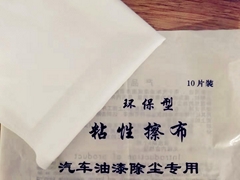 10片装
环保型
粘性擦布
汽车油漆除尘专用